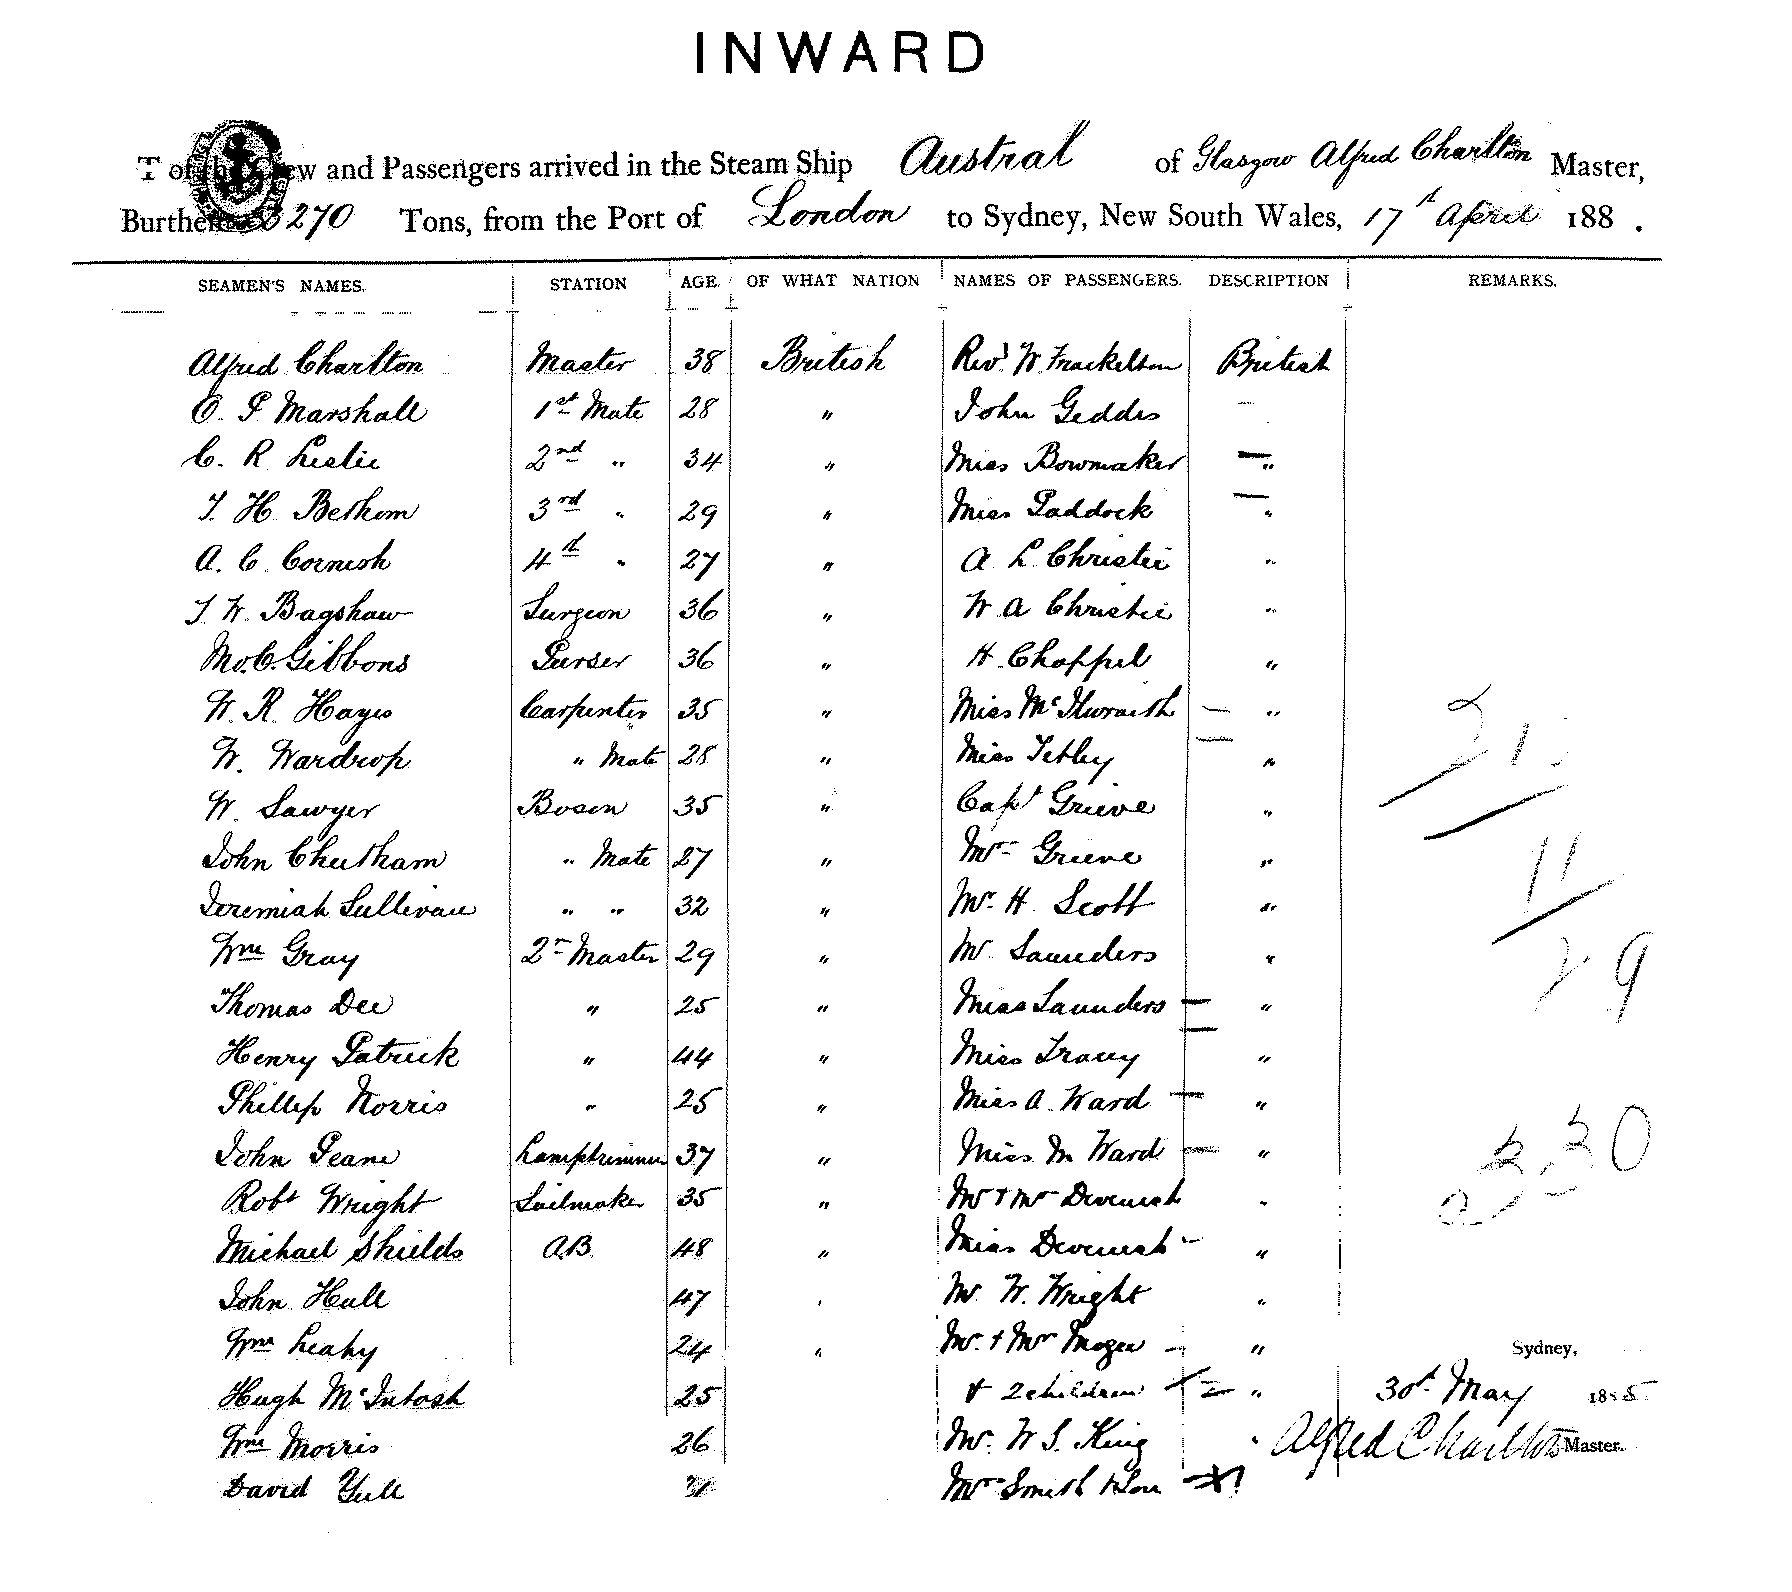 INWARD
of the Crew and Passengers arrived in the Steam Ship Austral of Glasgow Alfred Charlton Master,
Burthen 3270 Tons, from the Port of London to Sydney, New South Wales, 17th April 188 .
SEAMEN'S NAMES. STATION AGE. OF WHAT NATION NAMES OF PASSENGERS. DESCRIPTION REMARKS.
Alfred Charlton Master 38 British Revd W. Frackelton British
O. P Marshall 1st Mate 28 " John Geddes
C. R Leslie 2nd " 34 " Miss Bowmaker "
T. H Bethom 3rd " 29 " Miss Paddock "
A. C. Cornish 4th " 27 " A L Christie "
T. W. Bagshaw Surgeon 36 " W A Christie "
Gibbons Purser 36 " H. Chappel "
W. R. Hayes Carpenter 35 " Miss McIlwraith "
W. Wardrop " Mate 28 " Miss Tebley "
W. Sawyer Bosen 35 " Capt Grieve "
John Cheetham " Mate 27 " Mrs Grieve "
Jeremiah Sullivan " " 32 " Mr. H. Scott "
Wm Gray 2r Master 29 " Mr Saunders "
Thomas Dee " 25 " Miss Saunders "
Henry Patrick " 44 " Miss Tracey "
Phillip Norris " 25 " Miss A. Ward "
John Peane Lamptrimmer 37 " Miss M Ward "
Robt Wright Sailmaker 35 " Mr + Mrs Devenish "
Michael Shields AB 48 " Miss Devenish "
John Hull 47 " Mr. W. Wright "
Wm Leahy 24 " Mr. + Mrs "
Sydney,
Hugh McIntosh 25 + 2 children " 30th May 1885
Wm Morris 26 Mr. W S. King " Alfred Charlton Master.
David Yull Mrs Smith + Son
31
11
29